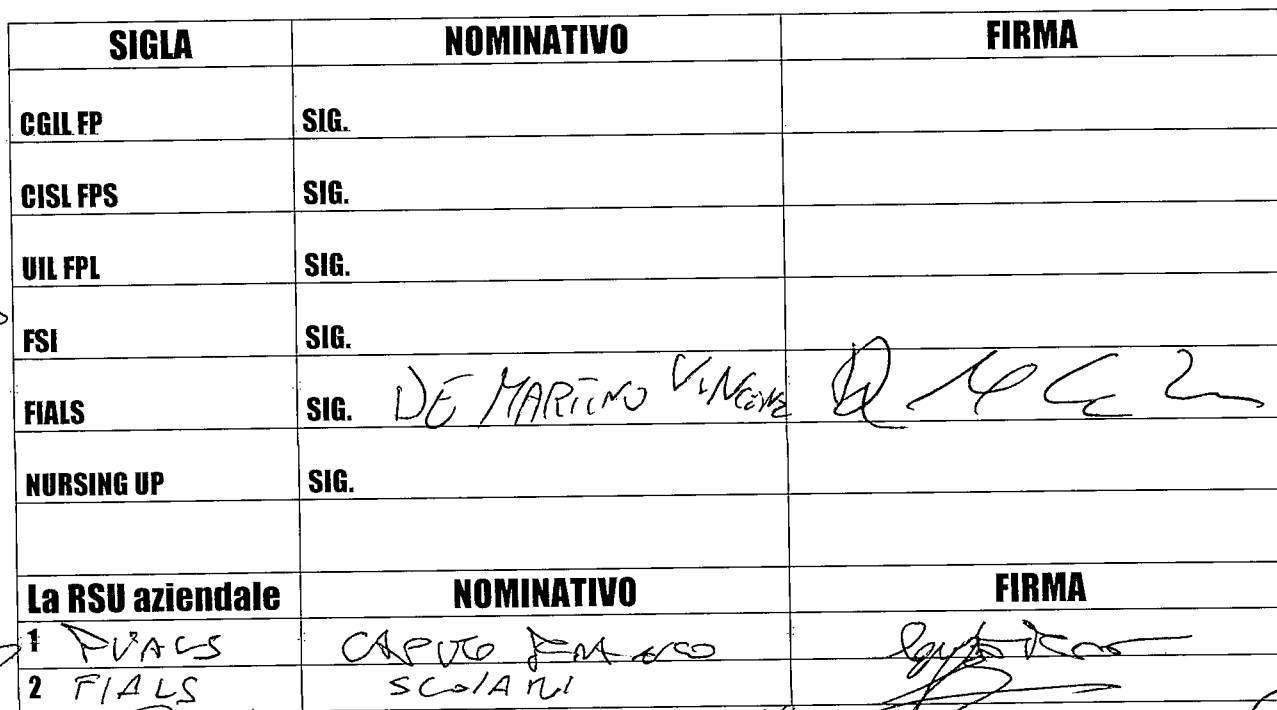 SIGLA NOMINATIVO FIRMA
CGIL FP SIG.
CISL FPS SIG.
UIL FPL SIG.
FSI SIG.
FIALS SIG. DE MARTINO
NURSING UP SIG.
La RSU aziendale NOMINATIVO FIRMA
1 CAPUTO
2 FIALS